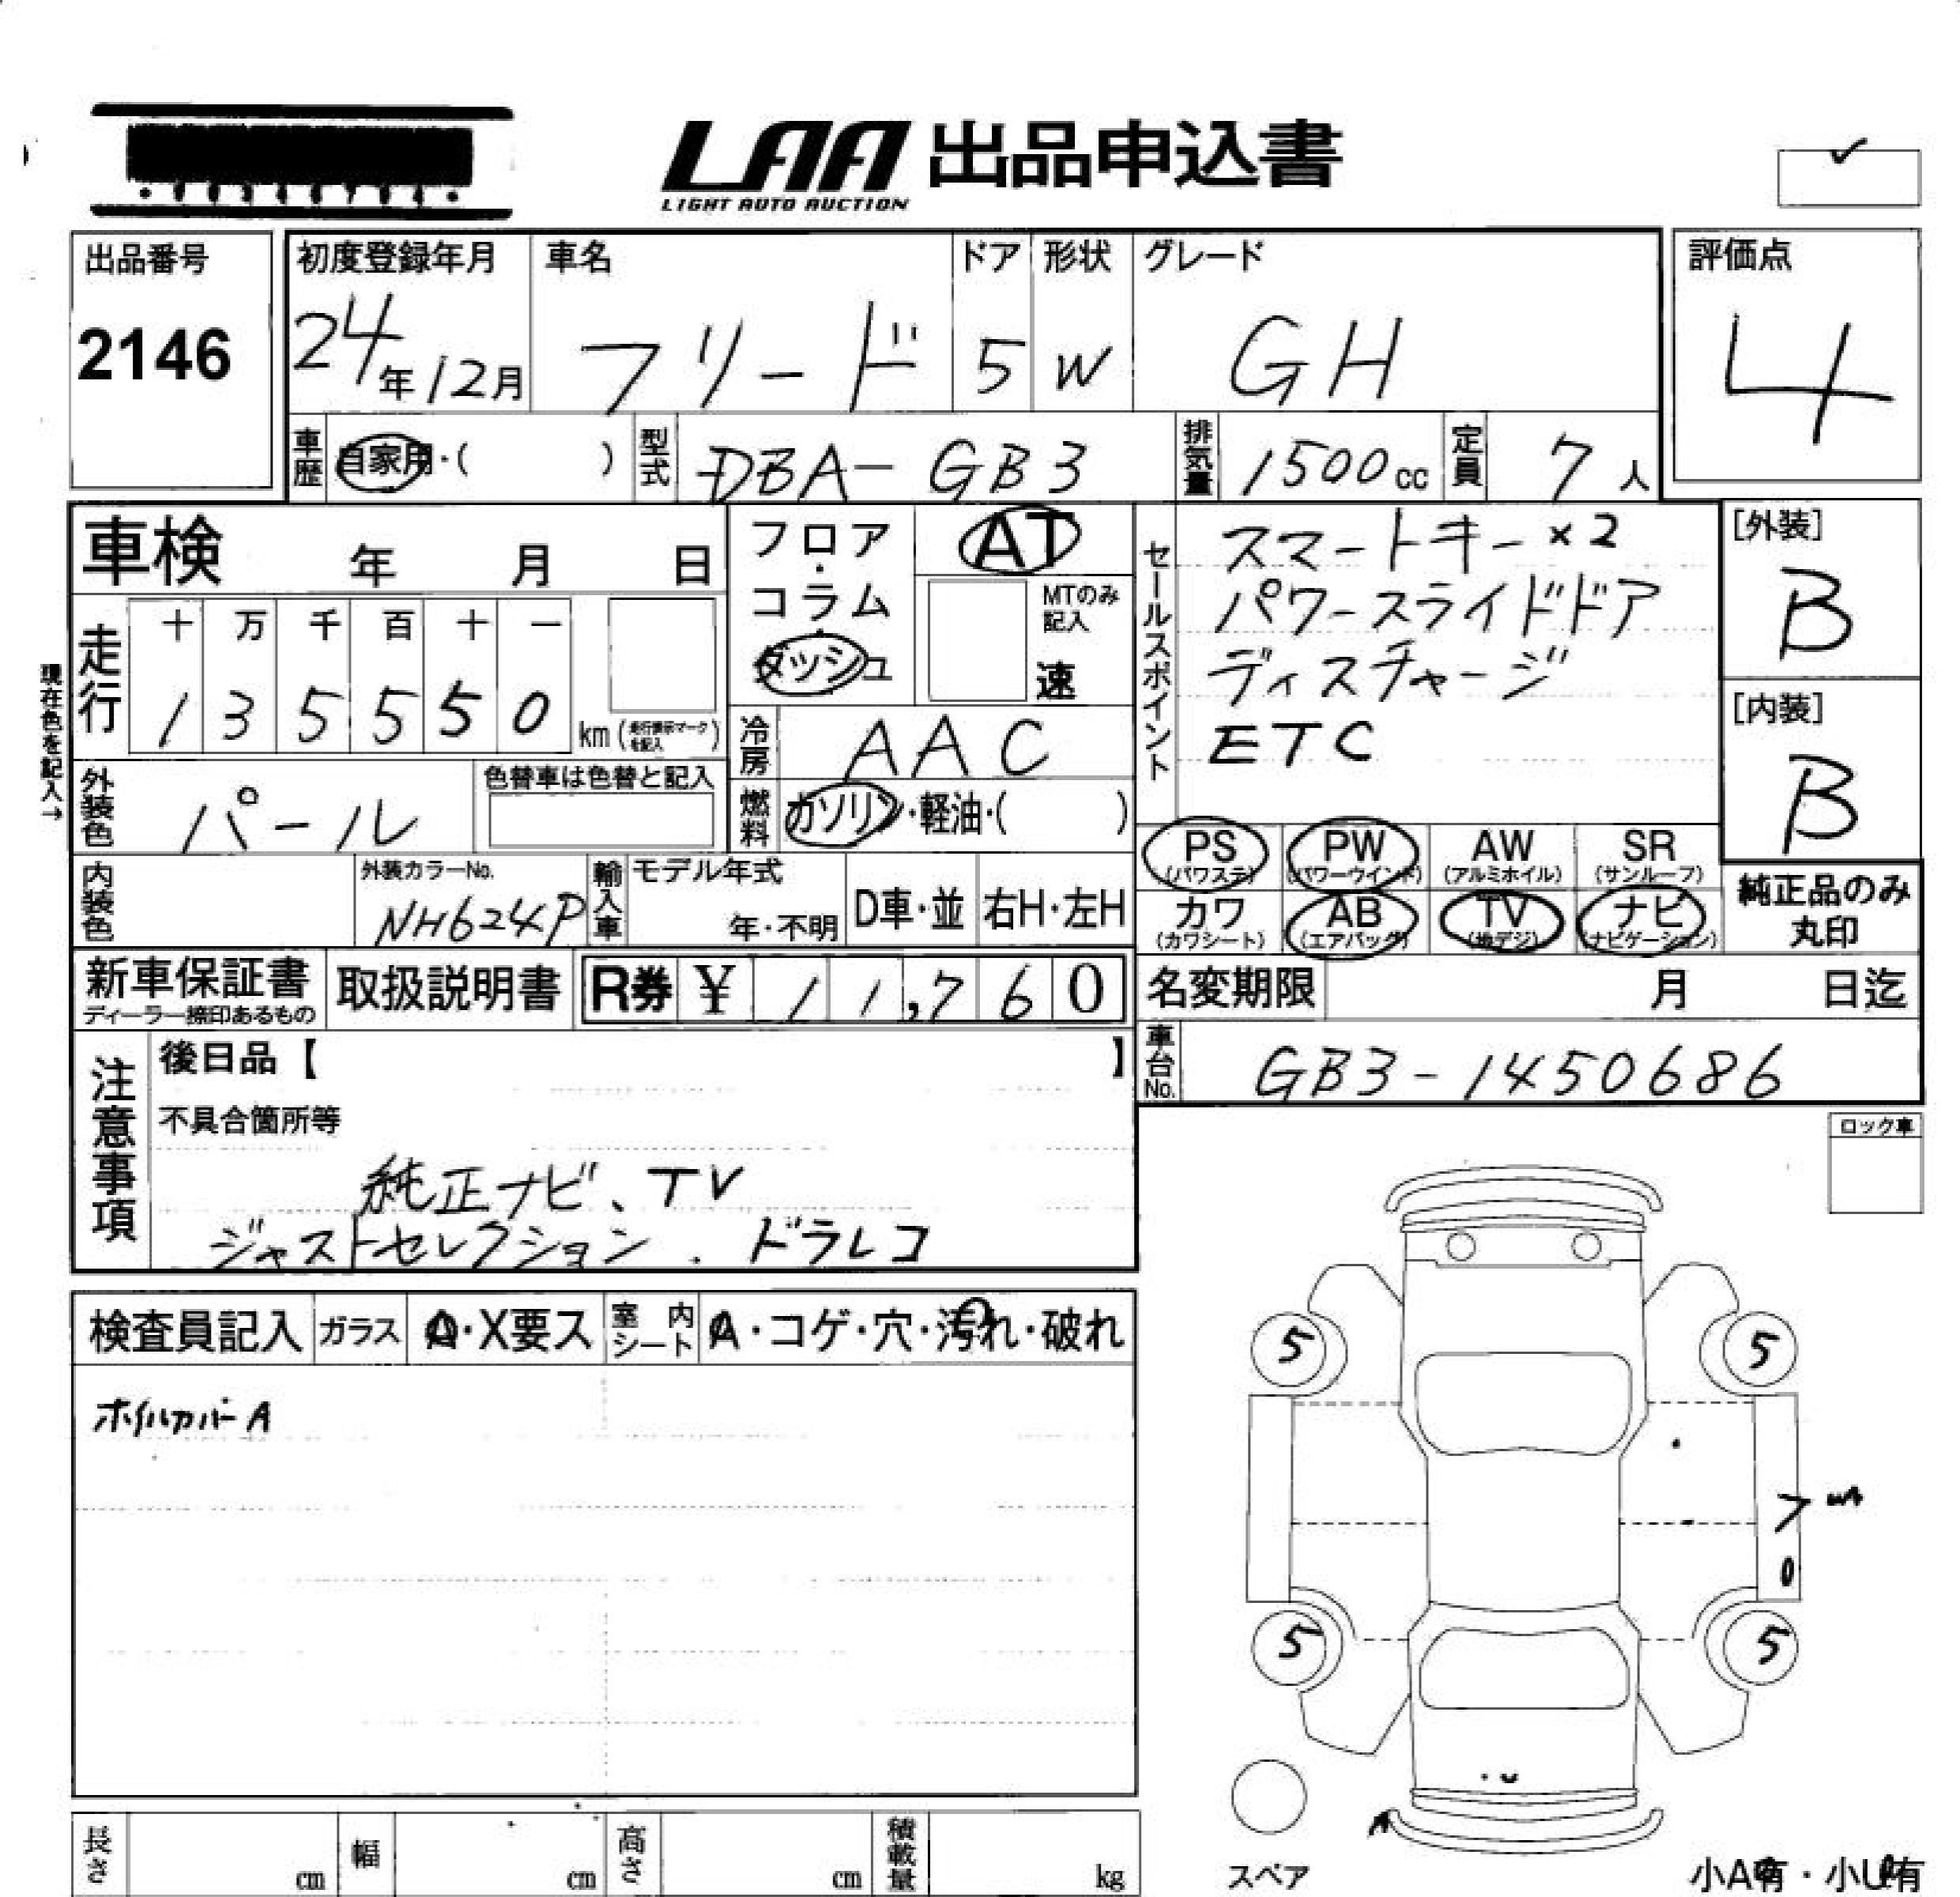 LAA 出品申込書
LIGHT AUTO AUCTION
出品番号
2146
初度登録年月
24年12月
車名
フリード
ドア
5
形状
W
グレード
GH
評価点
4
車歴 自家用・( )
型式 DBA-GB3
排気量 1500cc
定員 7人
車検 年 月 日
フロア・コラム・ダッシュ
AT
MTのみ記入
速
走行
十 万 千 百 十 一
1 3 5 5 5 0
km (走行表示マークを記入)
現在色を記入→
冷房 AAC
燃料 ガソリン・軽油・( )
外装色 パール
色替車は色替と記入
内装色
外装カラーNo.
NH624P
輸入車
モデル年式
年・不明
D車・並
右H・左H
セールスポイント
スマートキー×2
パワースライドドア
ディスチャージ
ETC
[外装]
B
[内装]
B
PS (パワステ)
PW (パワーウインド)
AW (アルミホイル)
SR (サンルーフ)
カワ (カワシート)
AB (エアバッグ)
TV (地デジ)
ナビ (ナビゲーション)
純正品のみ
丸印
新車保証書
ディーラー捺印あるもの
取扱説明書
R券 ¥ 11,760
名変期限 月 日迄
車台No. GB3-1450686
注意事項
後日品【 】
不具合箇所等
純正ナビ、TV
ジャストセレクション、ドラレコ
ロック車
検査員記入
ガラス A・X要ス
室内シート A・コゲ・穴・汚れ・破れ
ホイルカバーA
5
5
5
5
A
スペア
小A有・小U有
長さ cm
幅 cm
高さ cm
積載量 kg